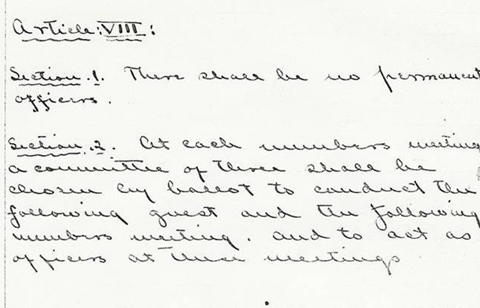 Article: VIII:
Section. 1. There shall be no permanent
officers.
Section. 2. At each members meeting
a committee of three shall be
chosen by ballot to conduct the
following guest and the following
members meeting. and to act as
officers at these meetings